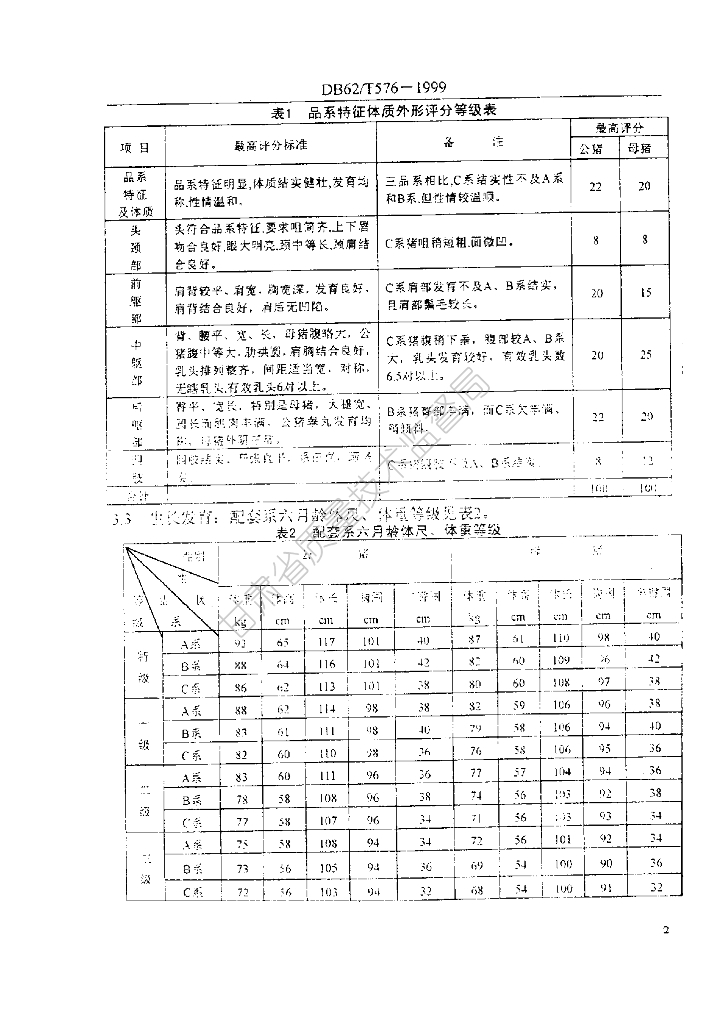 DB62/T576－1999
表1 品系特征体质外形评分等级表
项 目 最高评分标准 备 注 最高评分
公猪 母猪
品系
特征
及体质
品系特征明显,体质结实健壮,发育均
称,性情温和。
三品系相比,C系结实性不及A系
和B系,但性情较温顺。
22 20
头
颈
部
头符合品系特征,要求咀筒齐,上下唇
吻合良好,眼大明亮,颈中等长,颈肩结
合良好。
C系猪咀稍短粗,面微凹。
8 8
前
躯
部
肩背较平、肩宽、胸宽深，发育良好，
肩背结合良好，肩后无凹陷。
C系肩部发育不及A、B系结实，
且肩部鬃毛较长。
20 15
中
躯
部
背、腰平、宽、长，母猪腹略大，公
猪腹中等大,肋拱圆,肩胸结合良好，
乳头排列整齐，间距适当宽，对称，
无瞎乳头,有效乳头6对以上。
C系猪腹稍下垂，腹部较A、B系
大，乳头发育较好，有效乳头数
6.5对以上。
20 25
后
躯
部
臀平、宽长，特别是母猪，大腿宽、
圆长而肌肉丰满，公猪睾丸发育均
B系猪臀部丰满，而C系欠丰满、
稍倾斜。
22 20
四
肢
8 12
合计 100 100
3.3 生长发育：配套系六月龄体尺、体重等级见表2。
表2 配套系六月龄体尺、体重等级
公 猪 母 猪
体重 体高 体长 胸围 体重 体高 体长 胸围
kg cm cm cm cm kg cm cm cm cm
特
级
A系 93 65 117 101 40 87 61 110 98 40
B系 88 64 116 101 42 82 60 109 96 42
C系 86 62 113 101 38 80 60 108 97 38
一
级
A系 88 62 114 98 38 82 59 106 96 38
B系 83 61 111 98 40 79 58 106 94 40
C系 82 60 110 98 36 76 58 106 95 36
二
级
A系 83 60 111 96 36 77 57 104 94 36
B系 78 58 108 96 38 74 56 103 92 38
C系 77 58 107 96 34 71 56 103 93 34
三
级
A系 75 58 108 94 34 72 56 101 92 34
B系 73 56 105 94 36 69 54 100 90 36
C系 72 56 103 94 32 68 54 100 91 32
甘肃省质量技术监督局
2